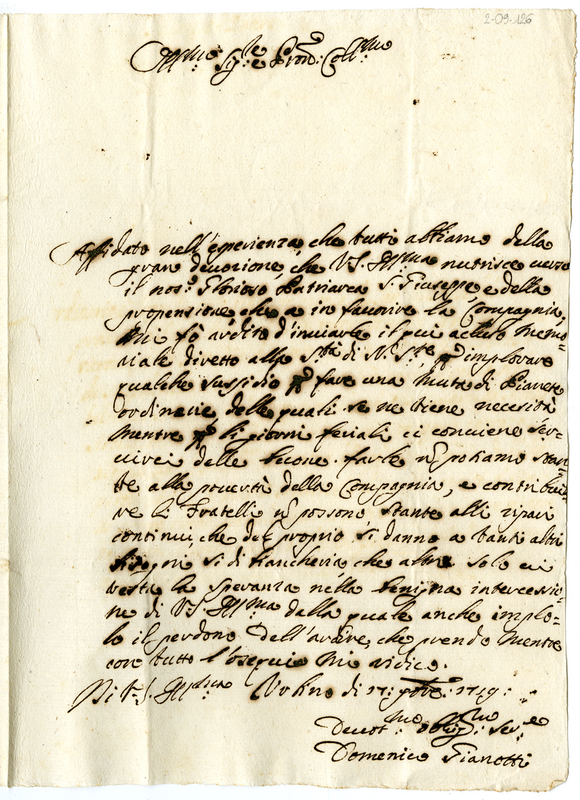 2-09-126
Ill:mo Sig:re Sig:re Pron: Coll:mo
Affidato nell'esperienza, che tutti abbiamo della
gran devozione, che V.S. Ill:ma nutrisce verso
il nos:o Glorioso Patriarca S. Giuseppe, e della
propensione, che a in favorire la Compagnia,
mi fò ardito d'inviarle il qui acluso Memo-
riale diretto alla S:tà di N. S:re p implorare
qualche sussidio p fare una Muta di Pianete
ordinarie, delle quali se ne tiene necesità
mentre p li giorni feriali ci conviene ser-
virci delle buone. farle n potiamo stan-
te alla povertà della Compagnia, e contribui-
re li Fratelli n possono stante alli ripari
continui, che del proprio si danno a tanti altri
bisogni si di biancheria che altro solo ci
resta la speranza nella benigna intercessio-
ne di V.S. Ill:ma dalla quale anche implo-
ro il perdono dell'ardire, che prendo mentre
con tutto l'osequio mi ridico.
Di V.S. Ill:ma Urbino di 17: 1719:
Devot:mo Oblig:mo Ser:e
Domenico Gianotti